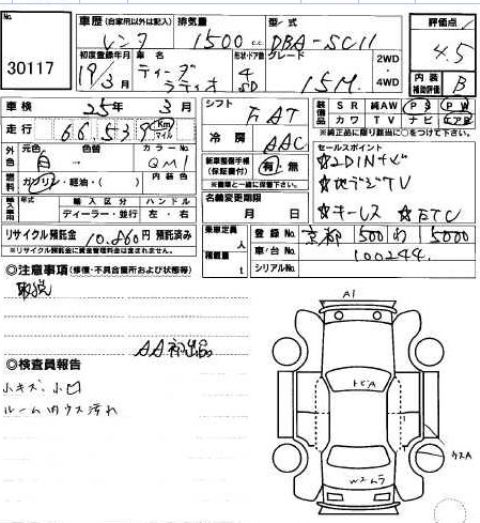 30117
車歴(自家用以外は記入) 排気量 型式 評価点
レンタ 1500cc DBA-SC11 4.5
初度登録年月 車名 形状・ドア数 グレード 2WD・4WD 内装補助評価
19年3月 ティーダラティオ 4 SD 15M B
車検 25年3月
走行 66,539 Km マイル
外色 元色 色替 カラーNo.
白 QM1
燃料 ガソリン・軽油・( ) 内装色
輸入車用 年式 輸入区分 ハンドル
ディーラー・並行 左・右
リサイクル預託金 10,860円 預託済み
※リサイクル預託金に資金管理料金は含まれません。
シフト FAT
冷房 AAC
新車整備手帳(保証書付) 有・無
※書類と一緒に保管下さい。
名義変更期限
月 日
装備品 SR 純AW PS PW
カワ TV ナビ エアB
※純正品に限り該当に○をつけて下さい。
セールスポイント
☆2DINナビ
☆地デジTV
☆キーレス ☆ETC
乗車定員 人
積載量 t
登録No. 京都 500 わ 5000
車台No. 100244
シリアルNo.
◎注意事項(修復・不具合箇所および状態等)
取説
AA初出品
◎検査員報告
小キズ・小凹
ルーム内ウス汚れ
A1
トビA
ウスA
W2ムラ